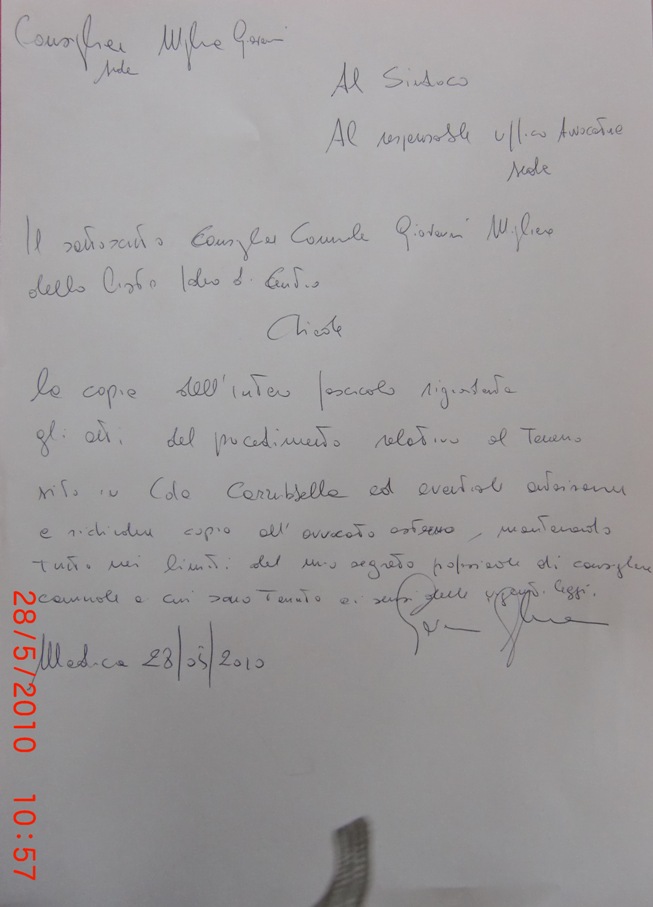 Consigliere Migliore Giovanni
sede
Al Sindaco
Al responsabile ufficio Avvocatura
sede
Il sottoscritto Consigliere Comunale Giovanni Migliore
della Lista Idea di Centro
Chiede
la copia dell'intero fascicolo riguardante
gli atti del procedimento relativo al Terreno
sito in C.da Carrubbella ed eventuale
e richiedere copia all'avvocato esterno, mantenendo
Tutto nei limiti del mio segreto professionale di consigliere
comunale a cui sono Tenuto ai sensi delle vigenti leggi.
Modica 28/05/2010
28/5/2010 10:57